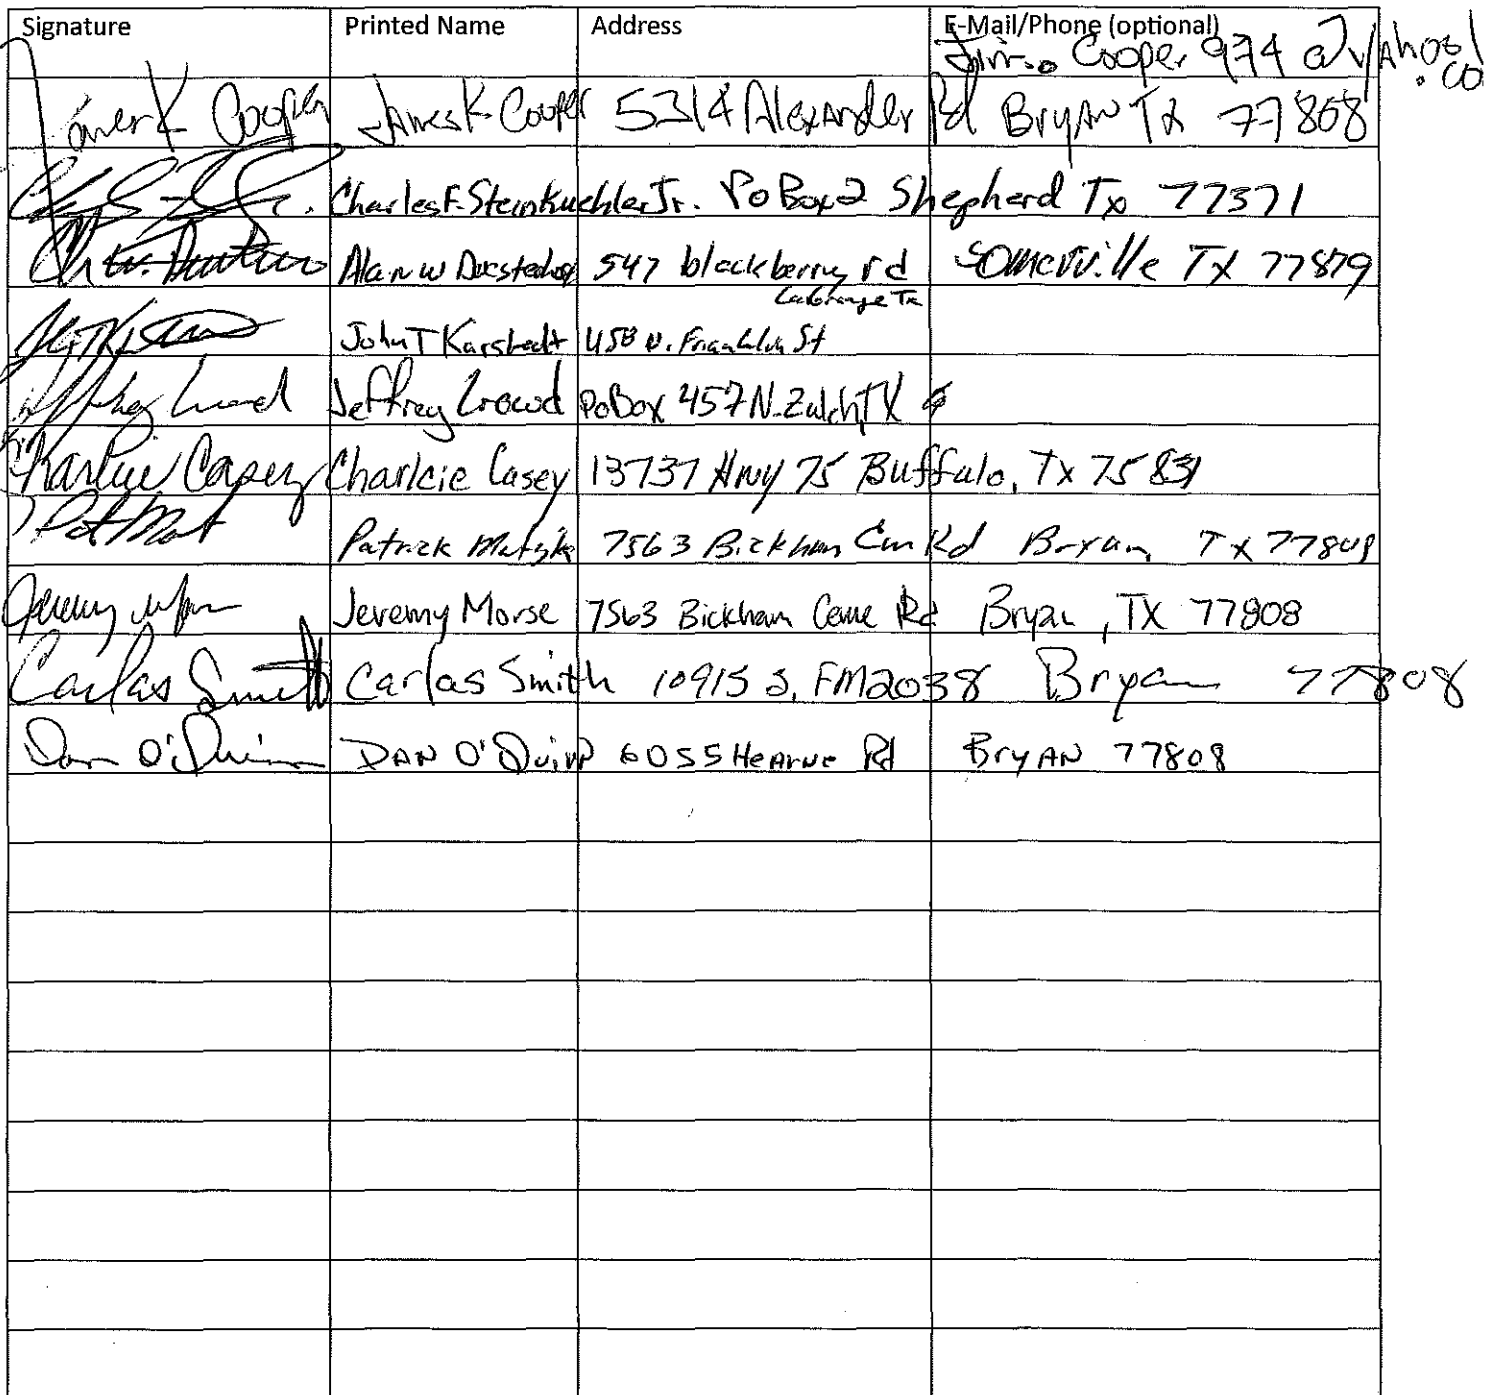 Signature Printed Name Address E-Mail/Phone (optional)
Jim.Cooper974@Yahoo!.co
James K Cooper James K Cooper 5314 Alexander Rd Bryan TX 77808
Charles F. Steinkuehler Jr. Po Box 2 Shepherd Tx 77371
Alan W 547 blackberry rd Somerville TX 77879
LaGrange Tx
John T Karstedt 458 N. Franklin St
Jeffrey Crowd PoBox 457 N. Zulch, TX
Charlcie Casey Charlcie Casey 13737 Hwy 75 Buffalo, Tx 75831
Pat Mat Patrick Matyik 7563 Bickham Cem Rd Bryan, TX 77808
Jeremy Jeremy Morse 7563 Bickham Ceme Rd Bryan, TX 77808
Carlas Smith Carlas Smith 10915 S. FM2038 Bryan 77808
Dan O'Quinn DAN O'Quinn 6055 Hearne Rd Bryan 77808